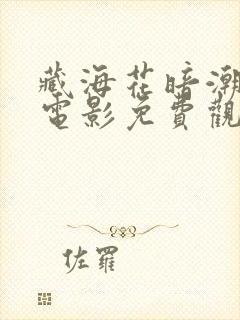 藏海花暗潮
電影免費觀
佐羅